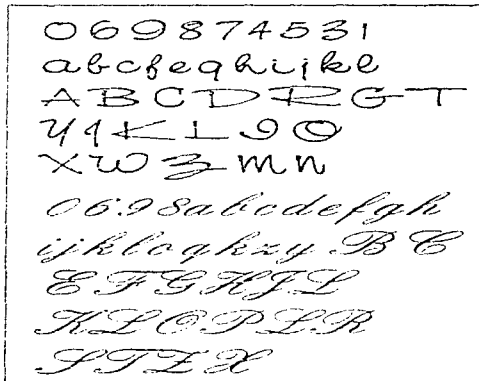 069874531
abcfeqhijkl
ABCDRGT
Y1KLIO
XWZmn
0698abcdefgh
ijkloqkzy BC
EFGHJL
KLOPLR
STZX